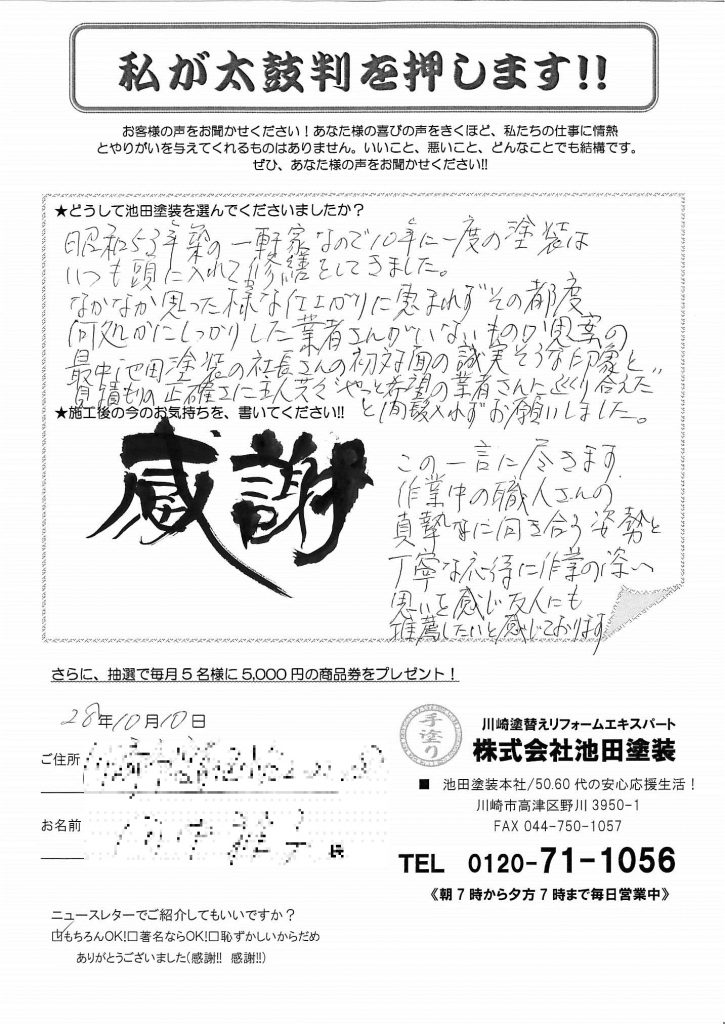 私が太鼓判を押します!!
お客様の声をお聞かせください！あなた様の喜びの声をきくほど、私たちの仕事に情熱
とやりがいを与えてくれるものはありません。いいこと、悪いこと、どんなことでも結構です。
ぜひ、あなた様の声をお聞かせください!!
★どうして池田塗装を選んでくださいましたか？
昭和53年築の一軒家なので10年に一度の塗装は
いつも頭に入れて修繕をしてきました。
なかなか思った様な仕上がりに恵まれずその都度
何処かにしっかりした業者さんがいないものか思案の
最中池田塗装の社長さんの初対面の誠実そうな印象と
見積もりの正確さに主人共々"やっと希望の業者さんに巡り合えた"
と間髪入れずお願いしました。
★施工後の今のお気持ちを、書いてください!!
感謝
この一言に尽きます
作業中の職人さんの
真摯に向き合う姿勢と
丁寧な応待に作業の深い
思いを感じ友人にも
推薦したいと感じております
さらに、抽選で毎月5名様に5,000円の商品券をプレゼント！
28年10月10日
ご住所
お名前
様
手塗り
川崎塗替えリフォームエキスパート
株式会社池田塗装
■ 池田塗装本社/50.60代の安心応援生活！
川崎市高津区野川3950-1
FAX 044-750-1057
TEL 0120-71-1056
《朝7時から夕方7時まで毎日営業中》
ニュースレターでご紹介してもいいですか？
☑もちろんOK!□著名ならOK!□恥ずかしいからだめ
ありがとうございました(感謝!! 感謝!!)